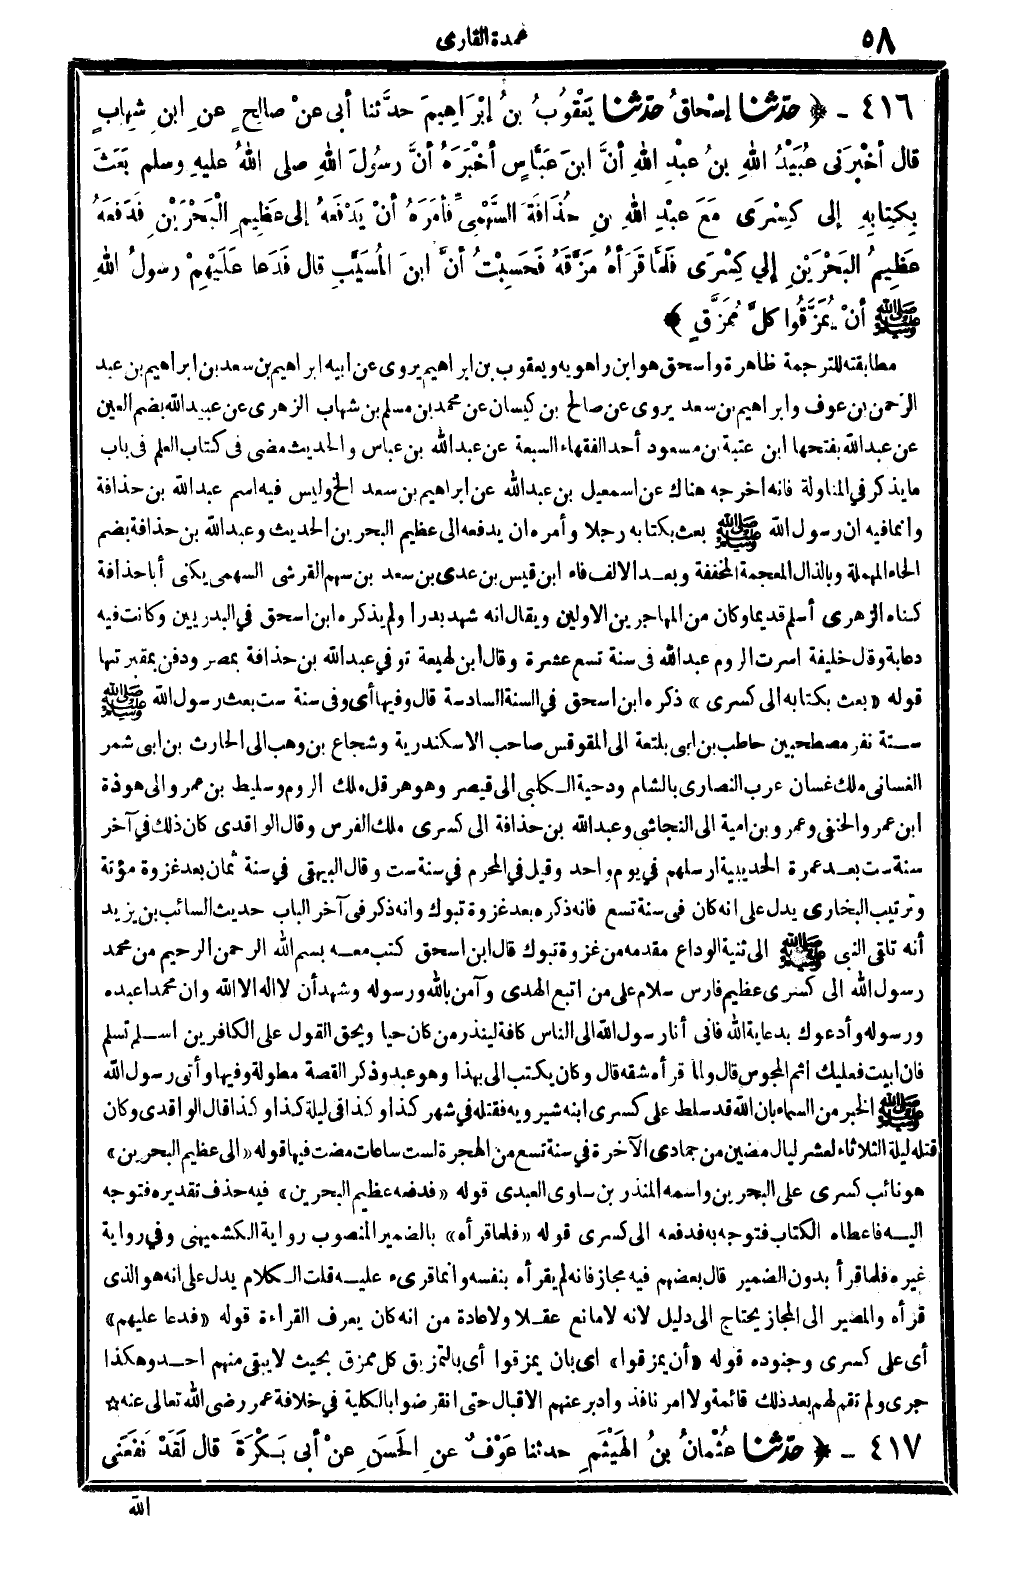 ٥٨
عمدة القارى
٤١٦ - ﴿ حدّثنا إسْحاقُ حدّثنا يَعْقُوبُ بنُ إبْرَاهِيمَ حدَّثنا أبى عنْ صالِحٍ عنِ ابنِ شِهابٍ
قال أخْبرَنى عُبَيْدُ اللهِ بنُ عبْدِ اللهِ أنَّ ابنَ عَبَّاسٍ أخْبَرَهُ أنَّ رسُولَ اللهِ صلى اللهُ عليهِ وسلم بَعَثَ
بِكِتابِهِ إلى كِسْرَى مَعَ عبْدِ اللهِ بنِ حُذَافَةَ السَّهْمِىِّ فأمَرَهُ أنْ يَدْفَعَهُ إلى عَظِيمِ الْبَحْرَيْنِ فَدَفَعَهُ
عَظِيمُ البَحْرَيْنِ إلي كِسْرَى فَلَمَّا قَرَأهُ مَزَّقَهُ فَحَسِبْتُ أنَّ ابنَ المُسَيَّبِ قال فَدَعا عَلَيْهِمْ رسُولُ اللهِ
ﷺ أنْ يُمَزَّقُوا كلَّ مُمَزَّقٍ ﴾
مطابقته للترجمة ظاهرة واسحق هو ابن راهويه ويعقوب بن ابراهيم يروى عن ابيه ابراهيم بن سعد بن ابراهيم بن عبد
الرحمن بن عوف وابراهيم بن سعد يروى عن صالح بن كيسان عن محمد بن مسلم بن شهاب الزهرى عن عبيد الله بضم العين
عن عبد الله بفتحها ابن عتبة بن مسعود أحد الفقهاء السبعة عن عبد الله بن عباس والحديث مضى فى كتاب العلم فى باب
ما يذكر في المناولة فانه اخرجه هناك عن اسمعيل بن عبد الله عن ابراهيم بن سعد الخ وليس فيه اسم عبد الله بن حذافة
وانما فيه ان رسول الله ﷺ بعث بكتابه رجلا وأمره ان يدفعه الى عظيم البحرين الحديث وعبد الله بن حذافة بضم
الحاء المهملة وبالذال المعجمة المخففة وبعد الالف فاء ابن قيس بن عدى بن سعد بن سهم القرشى السهمى يكنى أبا حذافة
كناه الزهرى أسلم قديما وكان من المهاجرين الاولين ويقال انه شهد بدرا ولم يذكره ابن اسحق في البدريين وكانت فيه
دعابة وقال خليفة اسرت الروم عبد الله فى سنة تسع عشرة وقال ابن لهيعة توفي عبد الله بن حذافة بمصر ودفن بمقبرتها
قوله «بعث بكتابه الى كسرى» ذكره ابن اسحق في السنة السادسة قال وفيها أى وفى سنة ست بعث رسول الله ﷺ
ستة نفر مصطحبين حاطب بن ابى بلتعة الى المقوقس صاحب الاسكندرية وشجاع بن وهب الى الحارث بن ابى شمر
الغسانى ملك غسان عرب النصارى بالشام ودحية الكلبي الى قيصر وهو هرقل ملك الروم وسليط بن عمرو الى هوذة
ابن عمرو الحنفى وعمرو بن امية الى النجاشى وعبد الله بن حذافة الى كسرى ملك الفرس وقال الواقدى كان ذلك في آخر
سنة ست بعد عمرة الحديبية ارسلهم في يوم واحد وقيل في المحرم في سنة ست وقال البيهقى في سنة ثمان بعد غزوة مؤتة
وترتيب البخارى يدل على انه كان فى سنة تسع فانه ذكره بعد غزوة تبوك وانه ذكر فى آخر الباب حديث السائب بن يزيد
أنه تلقى النبى ﷺ الى ثنية الوداع مقدمه من غزوة تبوك قال ابن اسحق كتب معه بسم الله الرحمن الرحيم من محمد
رسول الله الى كسرى عظيم فارس سلام على من اتبع الهدى وآمن بالله ورسوله وشهد أن لا اله الا الله وان محمدا عبده
ورسوله وأدعوك بدعاية الله فانى أنا رسول الله الى الناس كافة لينذر من كان حيا ويحق القول على الكافرين اسلم تسلم
فان ابيت فعليك اثم المجوس قال ولما قرأه شقه قال وكان يكتب الى بهذا وهو عبد وذكر القصة مطولة وفيها وأتى رسول الله
ﷺ الخبر من السماء بان الله قد سلط على كسرى ابنه شيرويه فقتله في شهر كذا وكذا فى ليلة كذا وكذا قال الواقدى وكان
قتله ليلة الثلاثاء لعشر ليال مضين من جمادى الآخرة في سنة تسع من الهجرة لست ساعات مضت فيها قوله «الى عظيم البحرين»
هو نائب كسرى على البحرين واسمه المنذر بن ساوى العبدى قوله «فدفعه عظيم البحرين» فيه حذف تقديره فتوجه
اليه فاعطاه الكتاب فتوجه به فدفعه الى كسرى قوله «فلما قرأه» بالضمير المنصوب رواية الكشميهنى وفي رواية
غيره فلما قرأ بدون الضمير قال بعضهم فيه مجاز فانه لم يقرأه بنفسه وانما قرىء عليه قلت الكلام يدل على انه هو الذى
قرأه والمصير الى المجاز يحتاج الى دليل لانه لا مانع عقلا ولا عادة من انه كان يعرف القراءة قوله «فدعا عليهم»
أى على كسرى وجنوده قوله «أن يمزقوا» اى بان يمزقوا أى بالتمزيق كل ممزق بحيث لا يبقى منهم احد وهكذا
جرى ولم تقم لهم بعد ذلك قائمة ولا امر نافذ وادبر عنهم الاقبال حتى انقرضوا بالكلية في خلافة عمر رضى الله تعالى عنه ☆
٤١٧ - ﴿ حدّثنا عُثْمانُ بنُ الهَيْثَمِ حدثنا عَوْفٌ عنِ الحَسَنِ عنْ أبى بَكْرَةَ قال لَقَدْ نَفَعَنى
الله